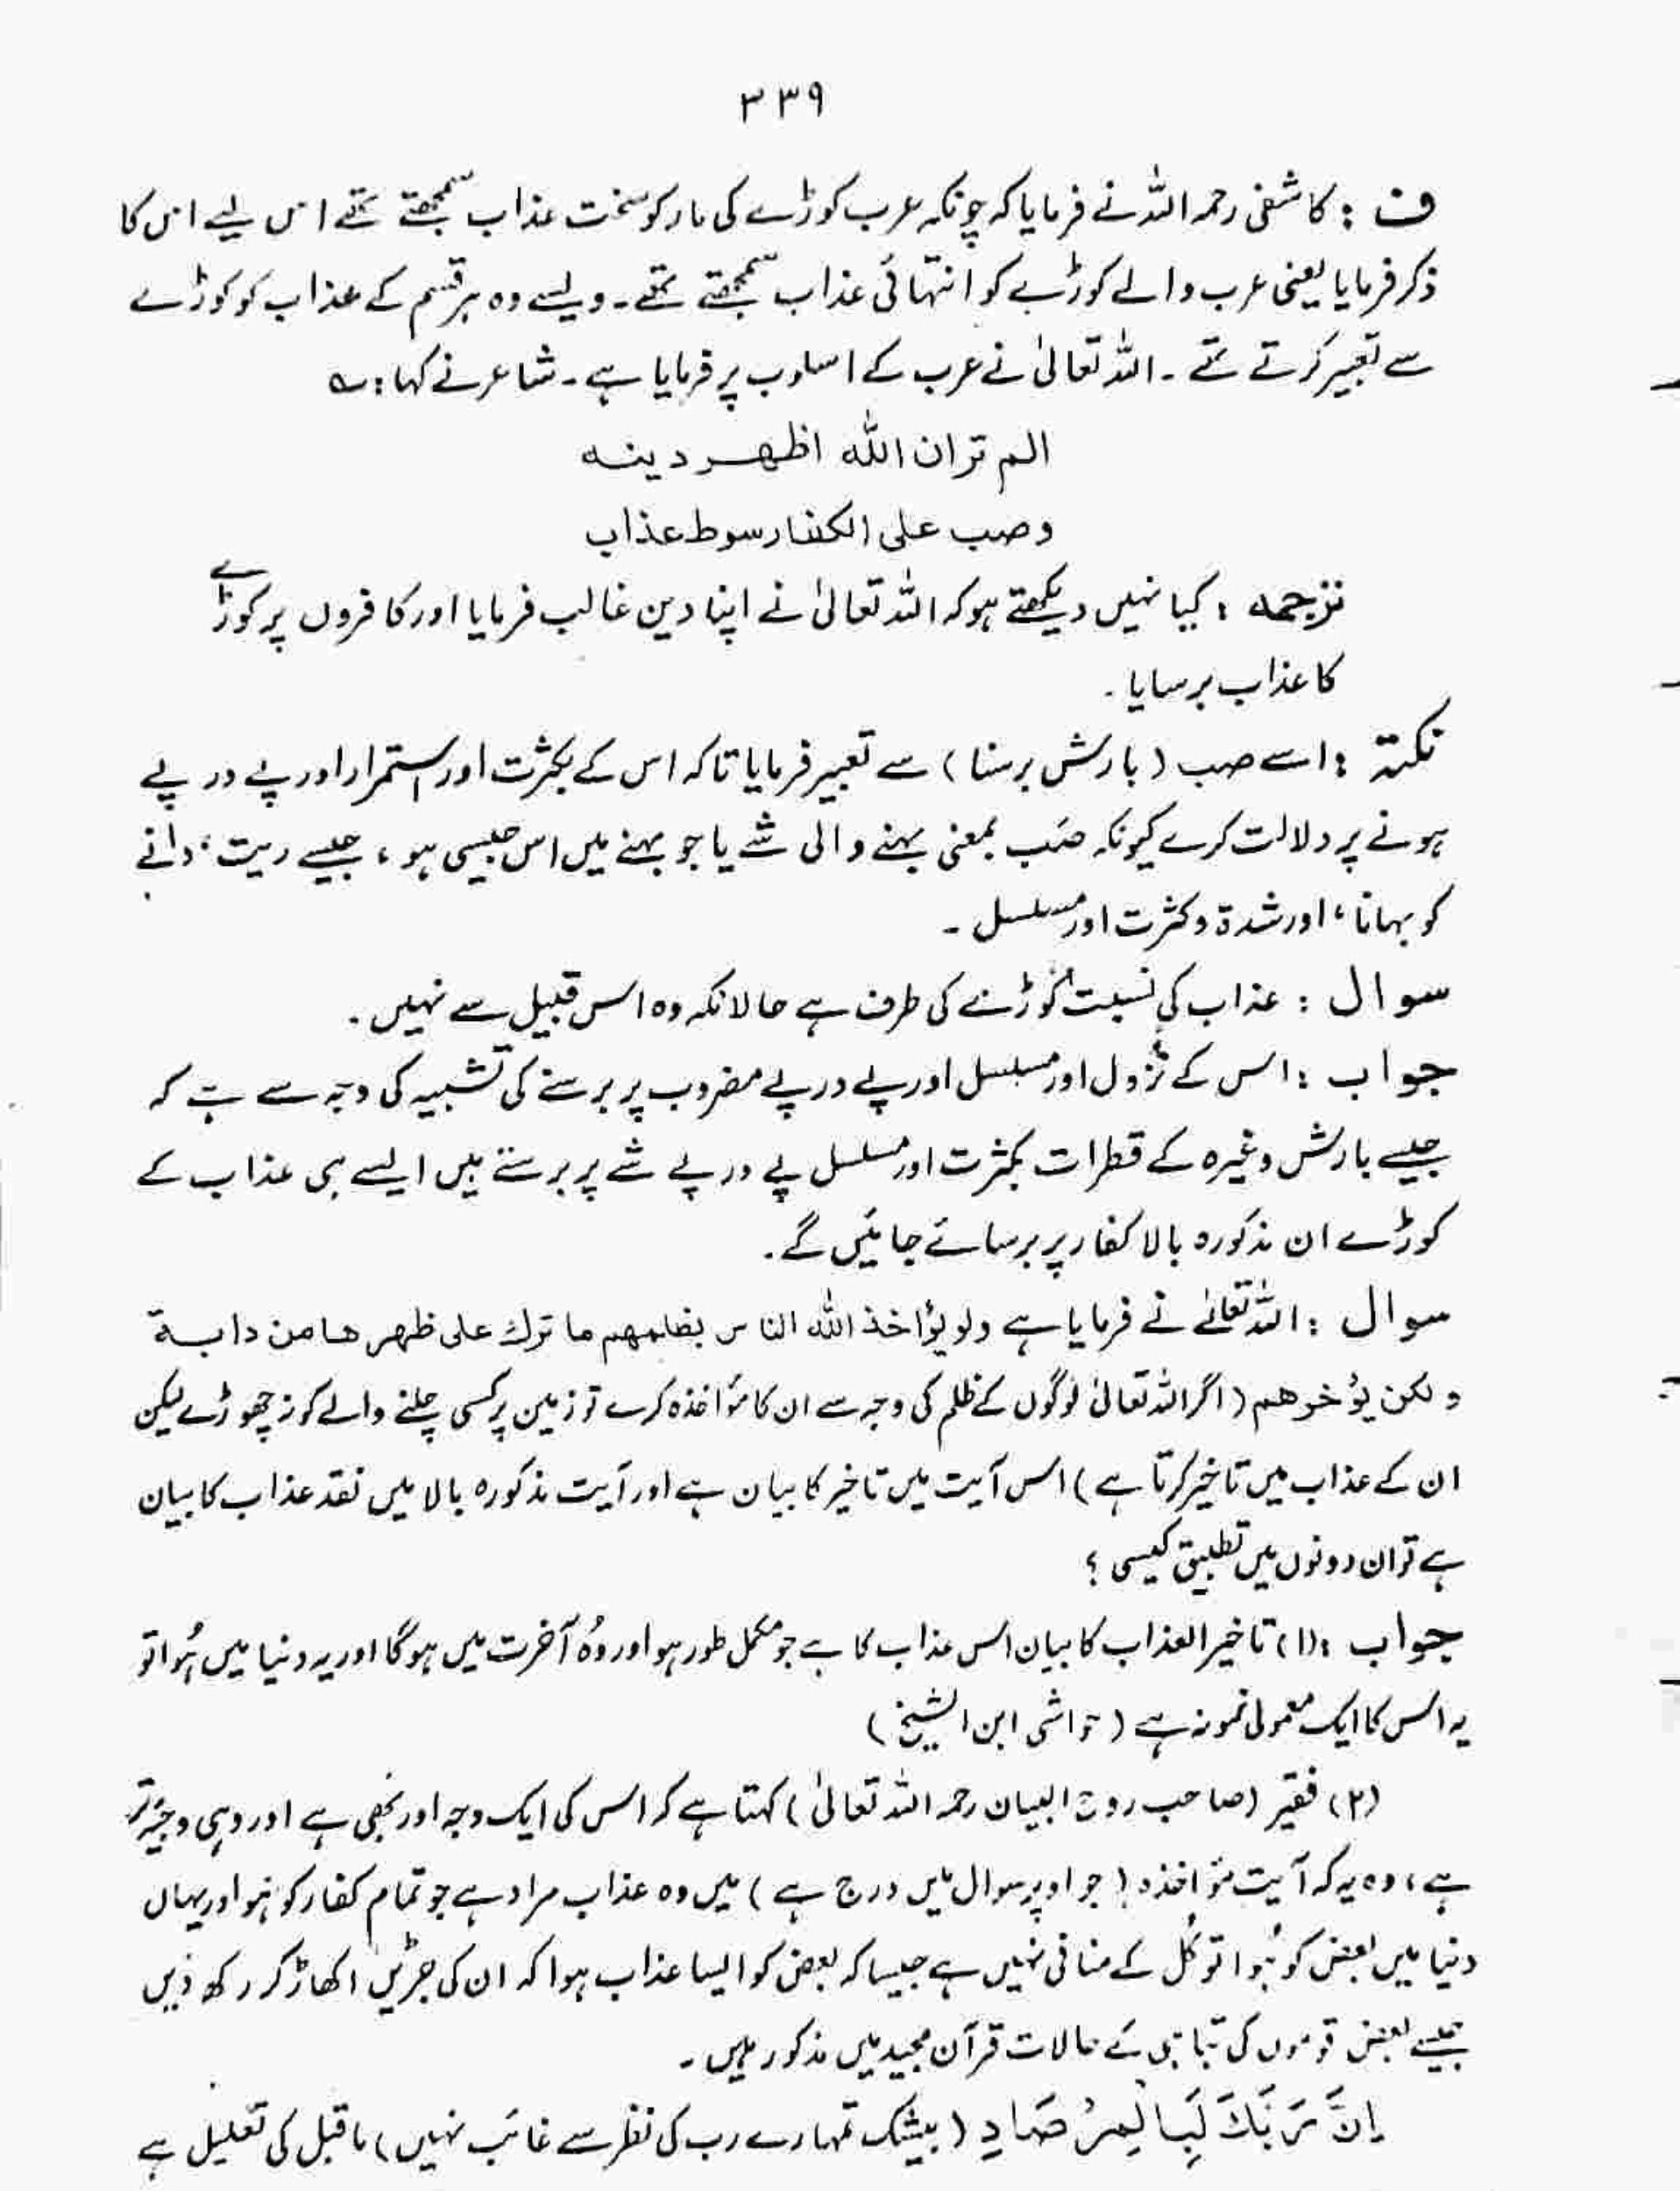 ۳۳۹
ف : کاشفی رحمہ اللہ نے فرمایا کہ چونکہ عرب کوڑے کی مار کو سخت عذاب سمجھتے تھے اس لیے اس کا
ذکر فرمایا یعنی عرب والے کوڑے کو انتہائی عذاب سمجھتے تھے۔ ویسے وہ ہر قسم کے عذاب کو کوڑے
سے تعبیر کرتے تھے ۔ اللہ تعالیٰ نے عرب کے اسلوب پر فرمایا ہے ۔ شاعر نے کہا : ؎
الم تر ان اللہ اظهر دینہ
وصب علی الکفار سوط عذاب
ترجمہ : کیا نہیں دیکھتے ہو کہ اللہ تعالیٰ نے اپنا دین غالب فرمایا اور کافروں پر کوڑے
کا عذاب برسایا ۔
نکتۃ : اسے صب (بارش برسنا) سے تعبیر فرمایا تاکہ اس کے بکثرت اور استمرار اور پے در پے
ہونے پر دلالت کرے کیونکہ صَب بمعنی بہنے والی شے یا جو بہنے میں اس جیسی ہو ، جیسے ریت ، دانے
کو بہانا ، اور شدۃ و کثرت اور مسلسل ۔
سوال : عذاب کی نسبت کوڑے کی طرف ہے حالانکہ وہ اس قبیل سے نہیں ۔
جواب : اس کے نزول اور مسلسل اور پے در پے مضروب پر برسنے کی تشبیہ کی وجہ سے ہے کہ
جیسے بارش وغیرہ کے قطرات بکثرت اور مسلسل پے در پے شے پر برستے ہیں ایسے ہی عذاب کے
کوڑے ان مذکورہ بالا کفار پر برسائے جائیں گے ۔
سوال : اللہ تعالیٰ نے فرمایا ہے ولو یؤاخذ اللہ الناس بظلمهم ما ترك علی ظهرها من دابة
و لکن یؤخرهم (اگر اللہ تعالیٰ لوگوں کے ظلم کی وجہ سے ان کا مؤاخذہ کرے تو زمین پر کسی چلنے والے کو نہ چھوڑے لیکن
ان کے عذاب میں تاخیر کرتا ہے) اس آیت میں تاخیر کا بیان ہے اور آیت مذکورہ بالا میں نقد عذاب کا بیان
ہے تو ان دونوں میں تطبیق کیسی ؟
جواب : (۱) تاخیر العذاب کا بیان اس عذاب کا ہے جو مکمل طور ہو اور وُہ آخرت میں ہوگا اور یہ دنیا میں ہُوا تو
یہ اس کا ایک معمولی نمونہ ہے (حواشی ابن الشیخ)
(۲) فقیر (صاحب روح البیان رحمہ اللہ تعالیٰ) کہتا ہے کہ اس کی ایک وجہ اور بھی ہے اور وہی وجیہ تر
ہے ، وہ یہ کہ آیت مؤاخذہ (جو اوپر سوال میں درج ہے) میں وہ عذاب مراد ہے جو تمام کفار کو ہو اور یہاں
دنیا میں بعض کو ہُوا تو کُل کے منافی نہیں ہے جیسا کہ بعض کو ایسا عذاب ہوا کہ ان کی جڑیں اکھاڑ کر رکھ دیں
جیسے بعض قوموں کی تباہی کے حالات قرآن مجید میں مذکور ہیں ۔
اِنَّ رَبَّكَ لَبِالْمِرْصَادِ (بیشک تمہارے رب کی نظر سے غائب نہیں) ماقبل کی تعلیل ہے